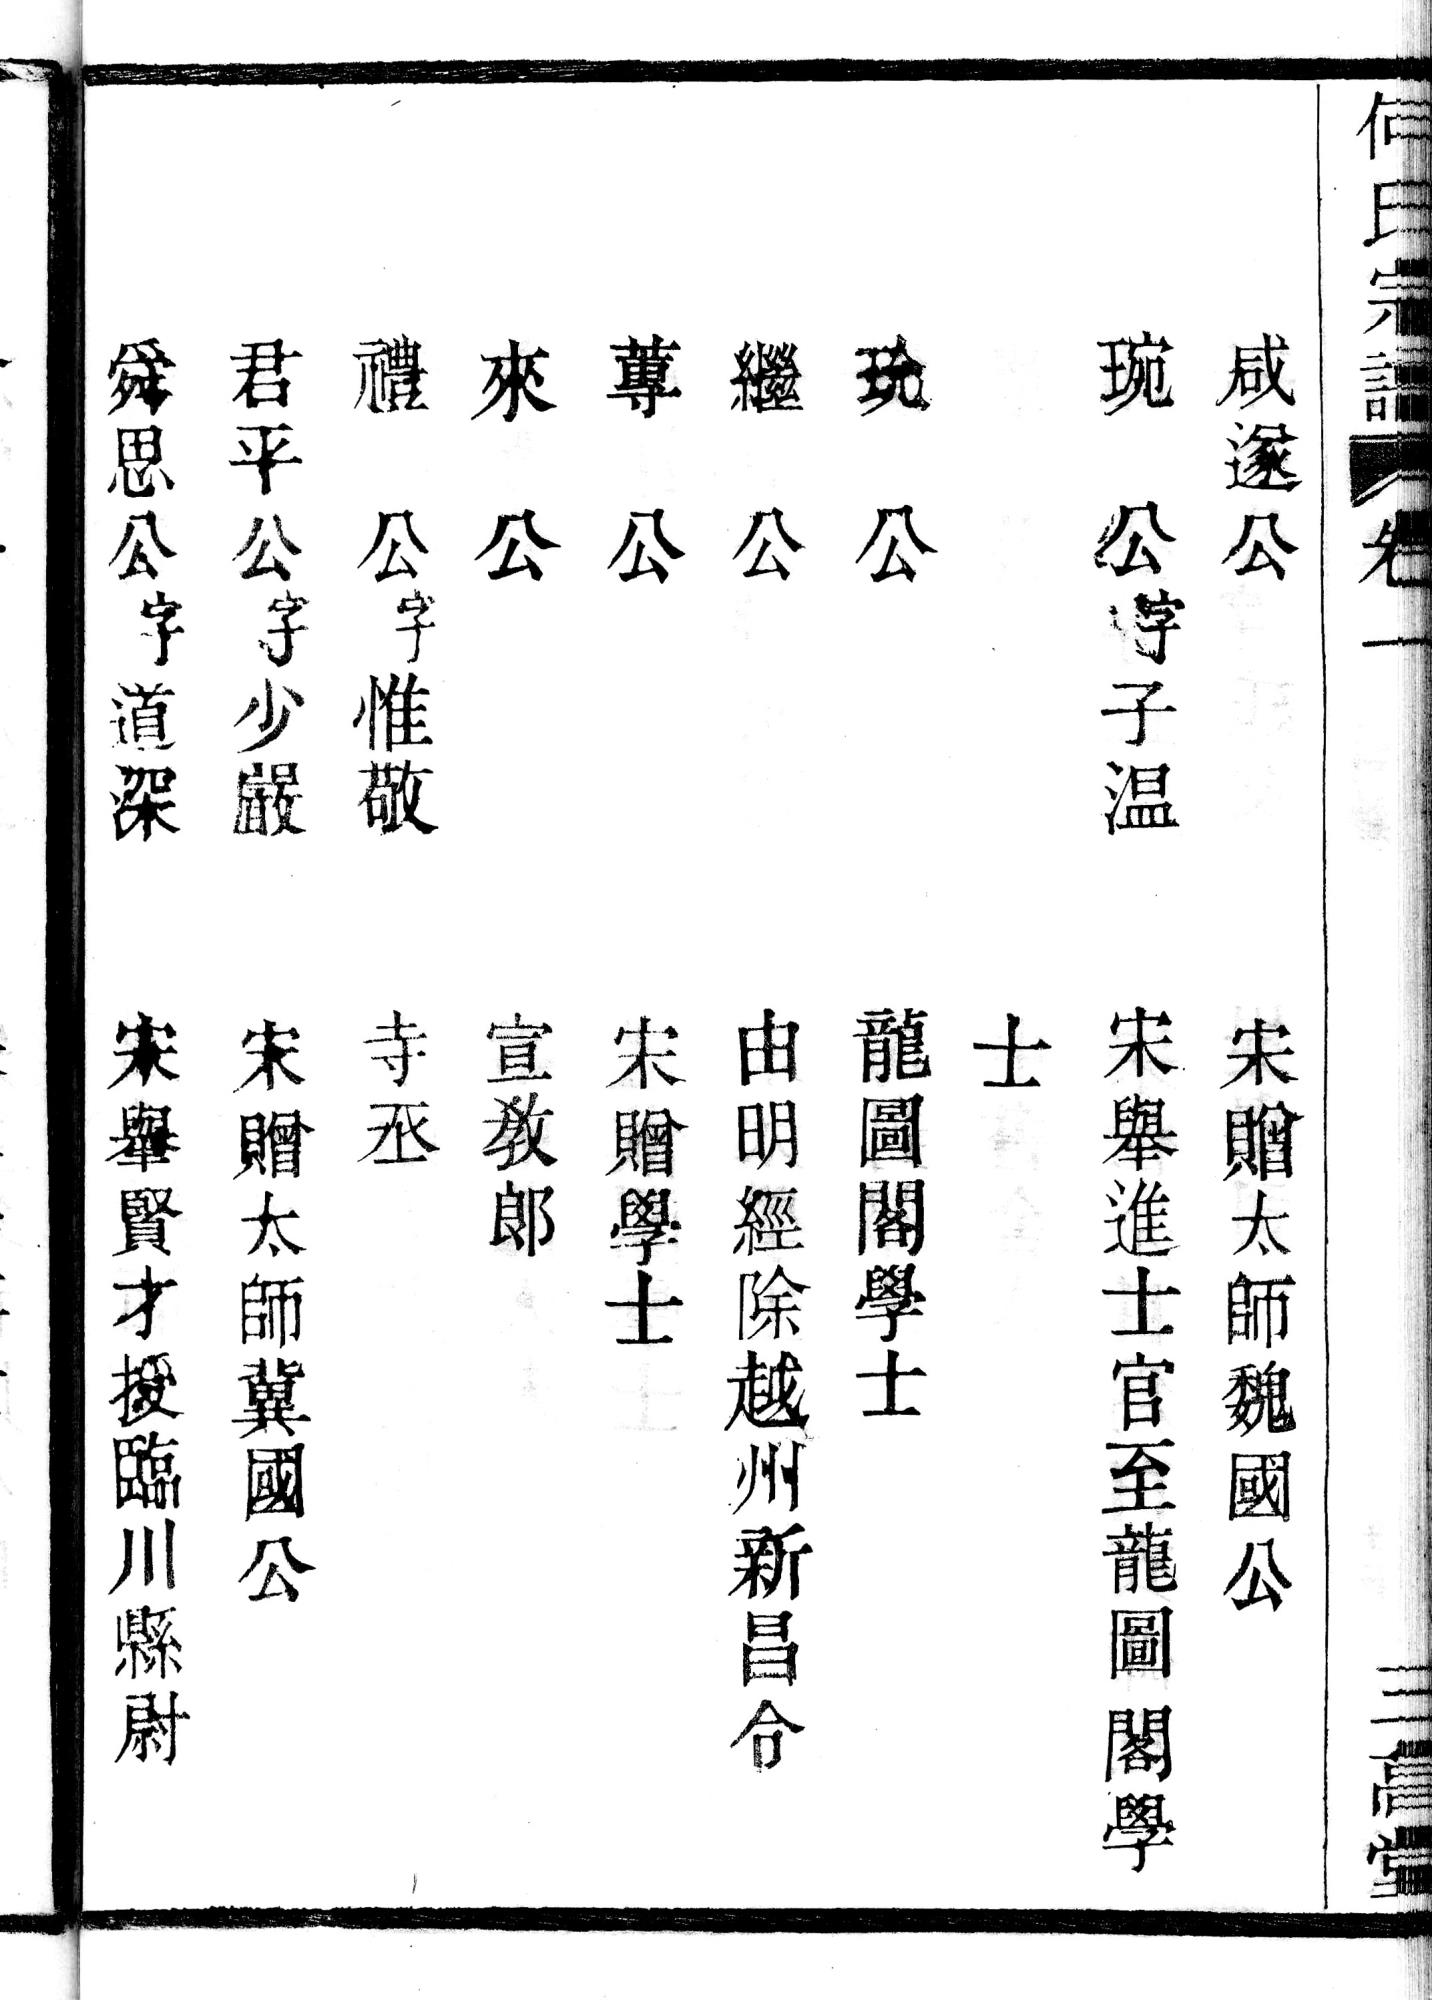 何氏宗譜 卷一 三高堂
咸遂公 宋贈太師魏國公
琬公字子温 宋舉進士官至龍圖閣學
士
琉公 龍圖閣學士
繼公 由明經除越州新昌令
蓴公 宋贈學士
來公 宣教郎
禮公字惟敬 寺丞
君平公字少嚴 宋贈太師冀國公
舜思公字道深 宋舉賢才授臨川縣尉